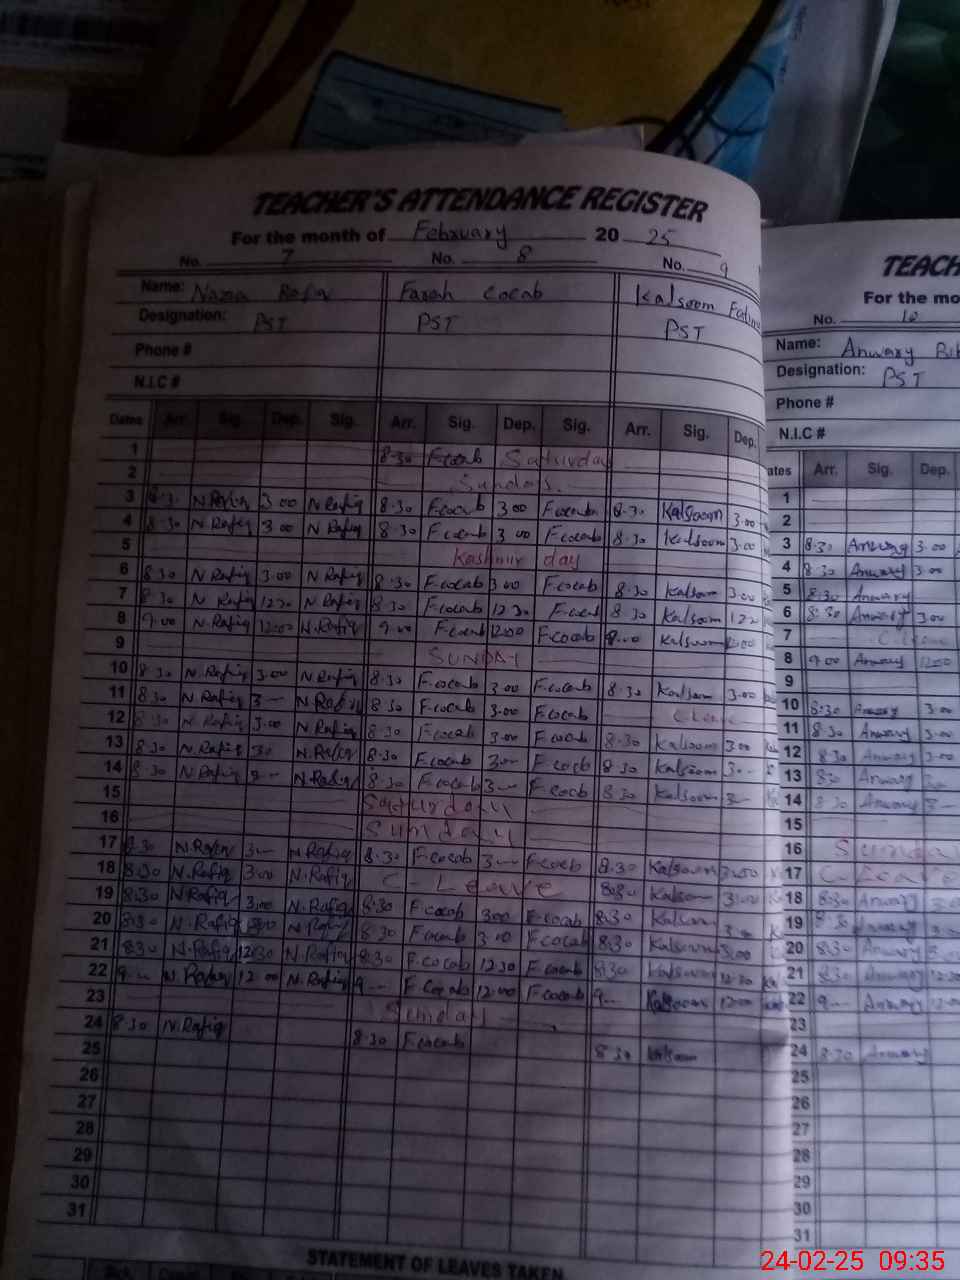 TEACHER'S ATTENDANCE REGISTER
For the month of February 20 25
No. 7 No. 8 No. 9
Name: Nazia Rafiq Farah Cocab Kalsoom
Designation: PST PST PST
Phone #
N.I.C #
Dates Arr. Sig. Dep. Sig. Arr. Sig. Dep. Sig. Arr. Sig. Dep.
1 8-30 F.cocab Saturday
2 Sunday
3 8.30 N.Rafiq 3.00 N.Rafiq 8.30 F.cocab 3.00 F.cocab 8.30 Kalsoom 3.00
4 8.30 N.Rafiq 3.00 N.Rafiq 8.30 F.cocab 3.00 F.cocab 8.30 Kalsoom 3.00
5 Kashmir day
6 8.30 N.Rafiq 3.00 N.Rafiq 8.30 F.cocab 3.00 F.cocab 8.30 Kalsoom 3.00
7 8.30 N.Rafiq 12.30 N.Rafiq 8.30 F.cocab 12.30 F.cocab 8.30 Kalsoom
8 9.00 N.Rafiq 12.00 N.Rafiq 9.00 F.cocab 12.00 F.cocab 9.00 Kalsoom 12.00
9 SUNDAY
10 8.30 N.Rafiq 3.00 N.Rafiq 8.30 F.cocab 3.00 F.cocab 8.30 Kalsoom 3.00
11 8.30 N.Rafiq 3- N.Rafiq 8.30 F.cocab 3.00 F.cocab
12 8.30 N.Rafiq 3.00 N.Rafiq 8.30 F.cocab 3.00 F.cocab 8.30 Kalsoom 3.00
13 8.30 N.Rafiq 30 N.Rafiq 8.30 F.cocab 3- F.cocb 8.30 Kalsoom 3-
14 8.30 N.Rafiq 3- N.Rafiq 8.30 F.cocab 3- F.cocb 8.30 Kalsoom 3-
15 Saturday
16 Sunday
17 8.30 N.Rafiq 3- N.Rafiq 8.30 F.cocab 3- F.cocb 8.30 Kalsoom 3.00
18 8.30 N.Rafiq 3.00 N.Rafiq C-Leave 8.30 Kalsoom 3.00
19 8.30 N.Rafiq 3.00 N.Rafiq 8.30 F.cocab 3.00 F.cocab 8.30 Kalsoom
20 8.30 N.Rafiq 3.00 N.Rafiq 8.30 F.cocab 3.00 F.cocab 8.30 Kalsoom 3.00
21 8.30 N.Rafiq 12.30 N.Rafiq 8.30 F.cocab 12.30 F.cocab 8.30 Kalsoom 12.30
22 9- N.Rafiq 12.00 N.Rafiq 9- F.cocab 12.00 F.cocab 9- Kalsoom 12.00
23 Sunday
24 8.30 N.Rafiq 8.30 F.cocab 8.30 Kalsoom
25
26
27
28
29
30
31
STATEMENT OF LEAVES TAKEN
For the
No. 10
Name: Anwary
Designation: PST
Phone #
N.I.C #
Arr. Sig. Dep.
1
2
3 8.30 Anwary 3.00
4 8.30 Anwary 3.00
5 8.30 Anwary
6 8.30 Anwary 3.00
7
8 9.00 Anwary 12.00
9
10 8.30 Anwary 3.00
11 8.30 Anwary 3.00
12 8.30 Anwary 3.00
13 830 Anwary
14 8.30 Anwary 3-
15
16
17
18 8.30 Anwary
19 8.30 Anwary
20 8.30 Anwary
21 8.30 Anwary
22 9- Anwary
23
24 8.30 Anwary
25
26
27
28
29
30
31
24-02-25 09:35